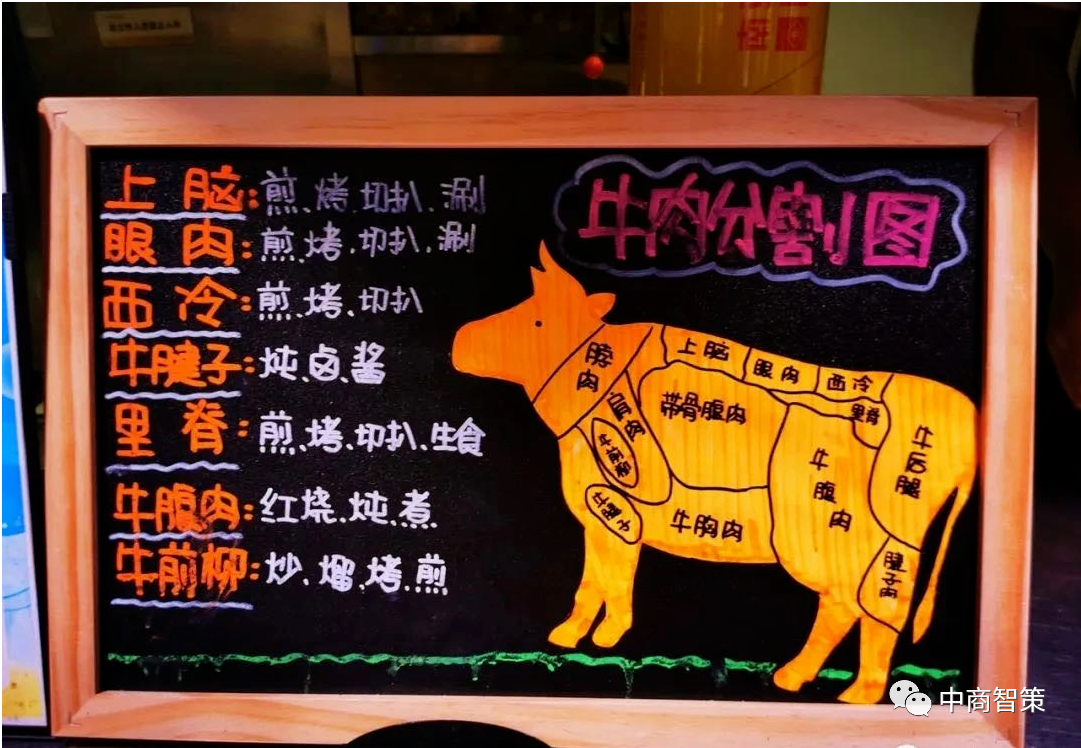 牛肉分割图
上脑:煎、烤、切扒、涮
眼肉:煎、烤、切扒、涮
西冷:煎、烤、切扒
牛腱子:炖、卤、酱
里脊:煎、烤、切扒、生食
牛腹肉:红烧、炖、煮
牛前柳:炒、熘、烤、煎
脖肉
上脑
眼肉
西冷
里脊
肩肉
带骨腹肉
牛前柳
牛腹肉
牛后腿
牛腱子
牛胸肉
腱子肉
中商智策